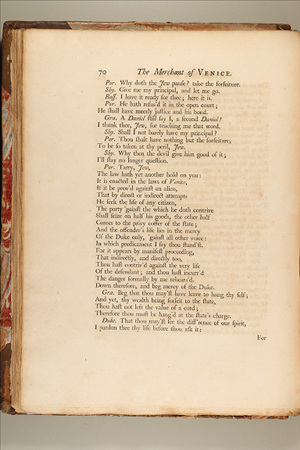 70 The Merchant of VENICE.
Por. Why doth the Jew pause? take thy forfeiture.
Shy. Give me my principal, and let me go.
Bass. I have it ready for thee; here it is.
Por. He hath refus'd it in the open court;
He shall have meerly justice and his bond.
Gra. A Daniel still say I, a second Daniel!
I thank thee, Jew, for teaching me that word.
Shy. Shall I not barely have my principal?
Por. Thou shalt have nothing but the forfeiture,
To be so taken at thy peril, Jew.
Shy. Why then the devil give him good of it;
I'll stay no longer question.
Por. Tarry, Jew,
The law hath yet another hold on you:
It is enacted in the laws of Venice,
If it be prov'd against an alien,
That by direct or indirect attempts
He seek the life of any citizen,
The party 'gainst the which he doth contrive
Shall seize on half his goods, the other half
Comes to the privy coffer of the state;
And the offender's life lies in the mercy
Of the Duke only, 'gainst all other voice:
In which predicament I say thou stand'st.
For it appears by manifest proceeding,
That indirectly, and directly too,
Thou hast contriv'd against the very life
Of the defendant; and thou hast incurr'd
The danger formally by me rehears'd.
Down therefore, and beg mercy of the Duke.
Gra. Beg that thou may'st have leave to hang thy self;
And yet, thy wealth being forfeit to the state,
Thou hast not left the value of a cord;
Therefore thou must be hang'd at the state's charge.
Duke. That thou may'st see the diff'rence of our spirit,
I pardon thee thy life before thou ask it;
For